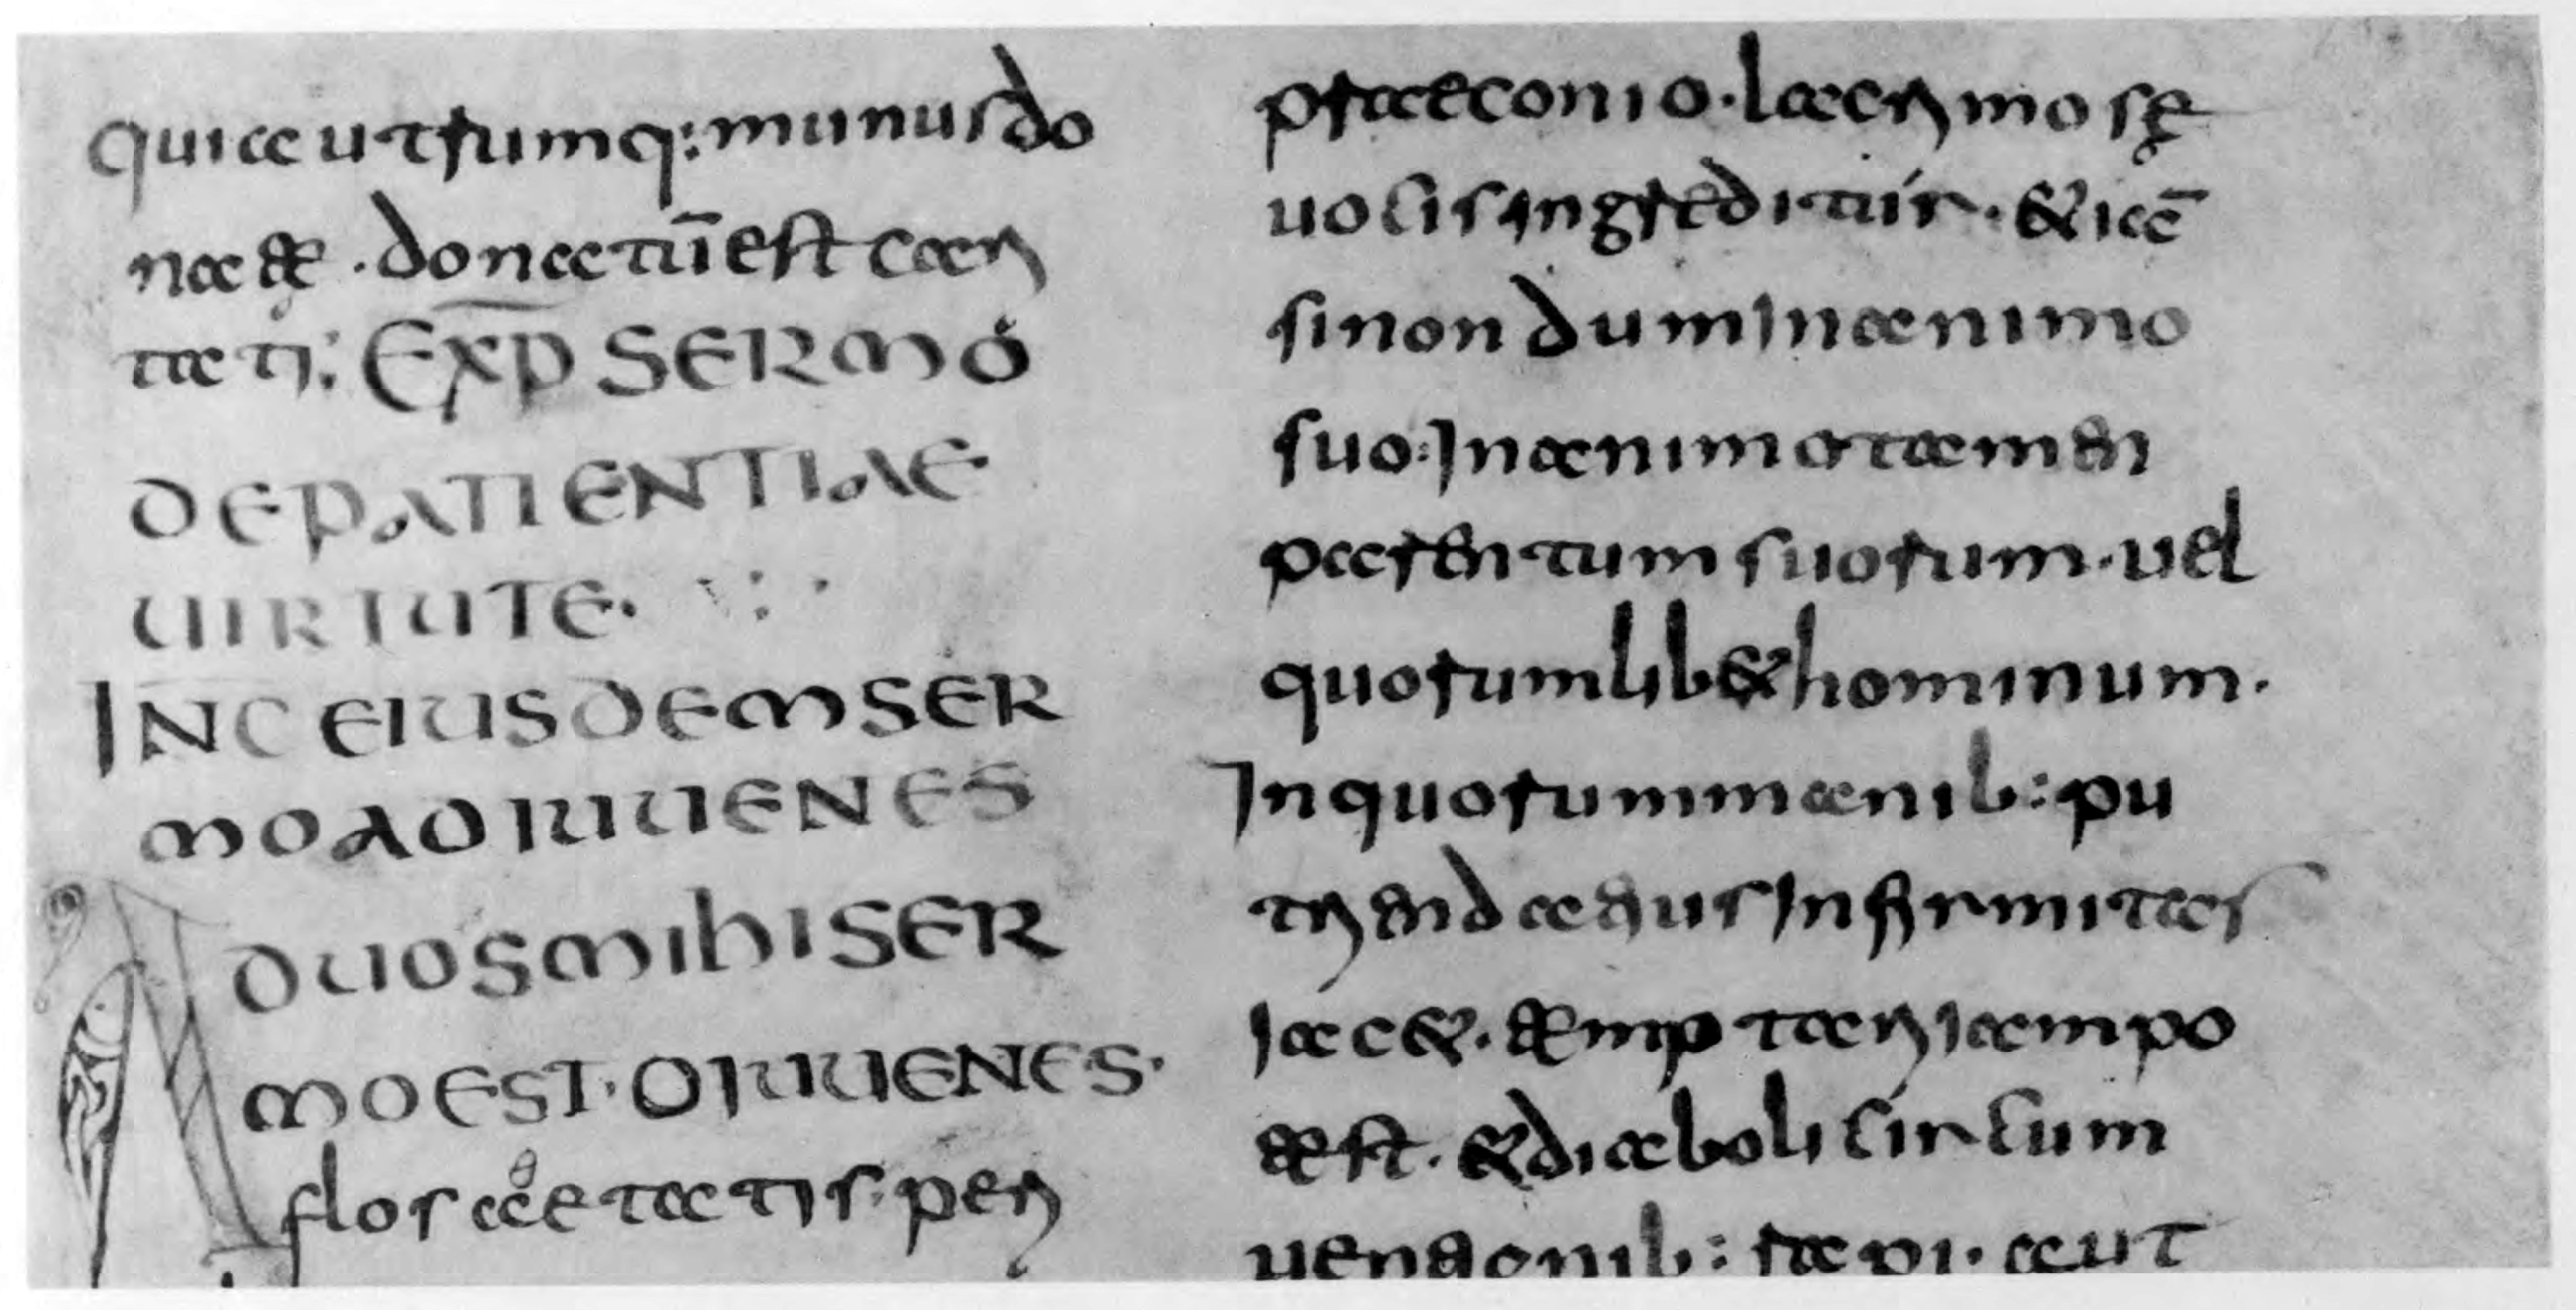 quia utrumq: munus do
natę. donatū est cari
tati: EXP SERMO
DE PATIENTIAE
UIRTUTE.
INC EIUSDEM SER
MO AD IUUENES
AD UOS MIHI SER
MO EST. O IUUENES.
flos aetatis. peri
praeconio. lacrimosę
uocis ingreditur. & iā
si nondum in animo
suo. In animo tamen
parentum suorum. uel
quorumlib& hominum.
In quorum manib: pu
trienda eius infirmitas
iac&. temptari iam po
test. & diaboli circum
uentionib: rapi. aut